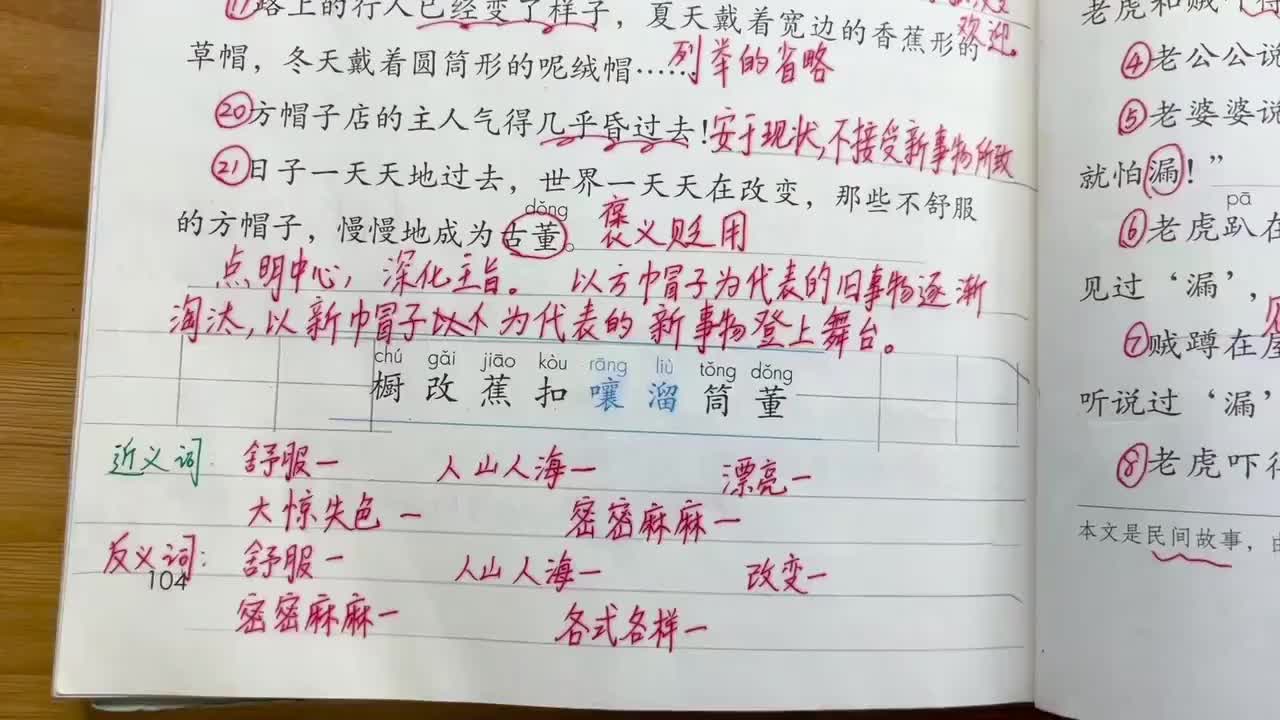 ⑰路上的行人已经变了样子，夏天戴着宽边的香蕉形的
欢迎
草帽，冬天戴着圆筒形的呢绒帽……
列举的省略
⑳方帽子店的主人气得几乎昏过去！
安于现状，不接受新事物所致
㉑日子一天天地过去，世界一天天在改变，那些不舒服
dǒng
的方帽子，慢慢地成为古董。
褒义贬用
点明中心，深化主旨。 以方巾冒子为代表的旧事物逐渐
淘汰，以新巾冒子为代表的新事物登上舞台。
chú gǎi jiāo kòu rāng liù tǒng dǒng
橱 改 蕉 扣 嚷 溜 筒 董
近义词： 舒服— 人山人海— 漂亮—
大惊失色— 密密麻麻—
反义词： 舒服— 人山人海— 改变—
104
密密麻麻— 各式各样—
老虎和贼
④老公公说
⑤老婆婆说
就怕漏！”
pā
⑥老虎趴在
见过‘漏’，
⑦贼蹲在屋
听说过‘漏’
⑧老虎吓得
本文是民间故事，